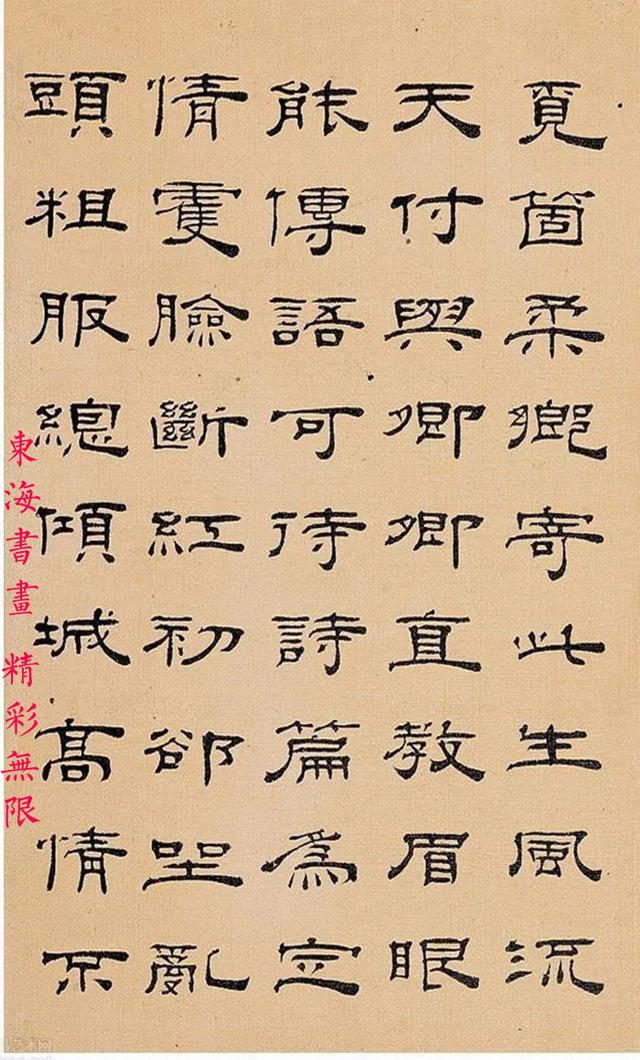 覓箇柔鄉寄此生風流
天付與卿卿直教眉眼
能傳語可待詩篇爲定
情䨇臉斷紅初卻坐亂
頭粗服總傾城髙情不
東海書畫 精彩無限